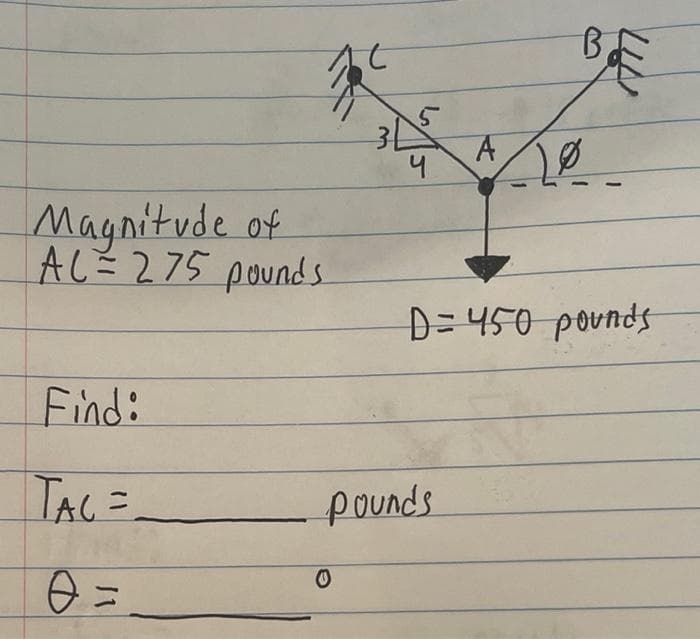 C
B
5
3
4
A
Ø
Magnitude of
AC = 275 pounds
D = 450 pounds
Find:
TAC = ________ pounds
θ = ________ °